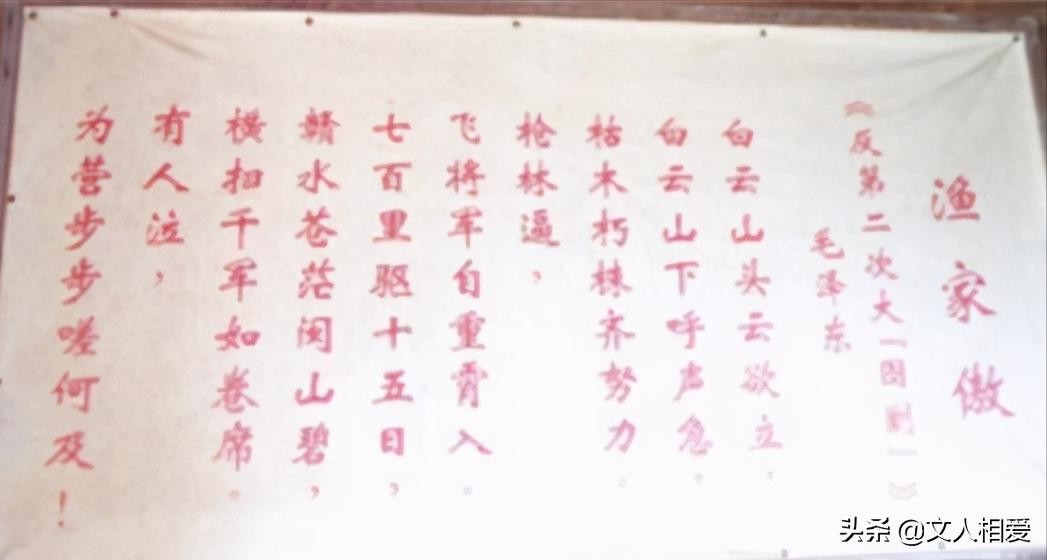 渔家傲
《反第二次大「围剿」》
毛泽东
白云山头云欲立,
白云山下呼声急,
枯木朽株齐努力。
枪林逼,
飞将军自重霄入。
七百里驱十五日,
赣水苍茫闽山碧,
横扫千军如卷席。
有人泣,
为营步步嗟何及!
头条 @文人相爱